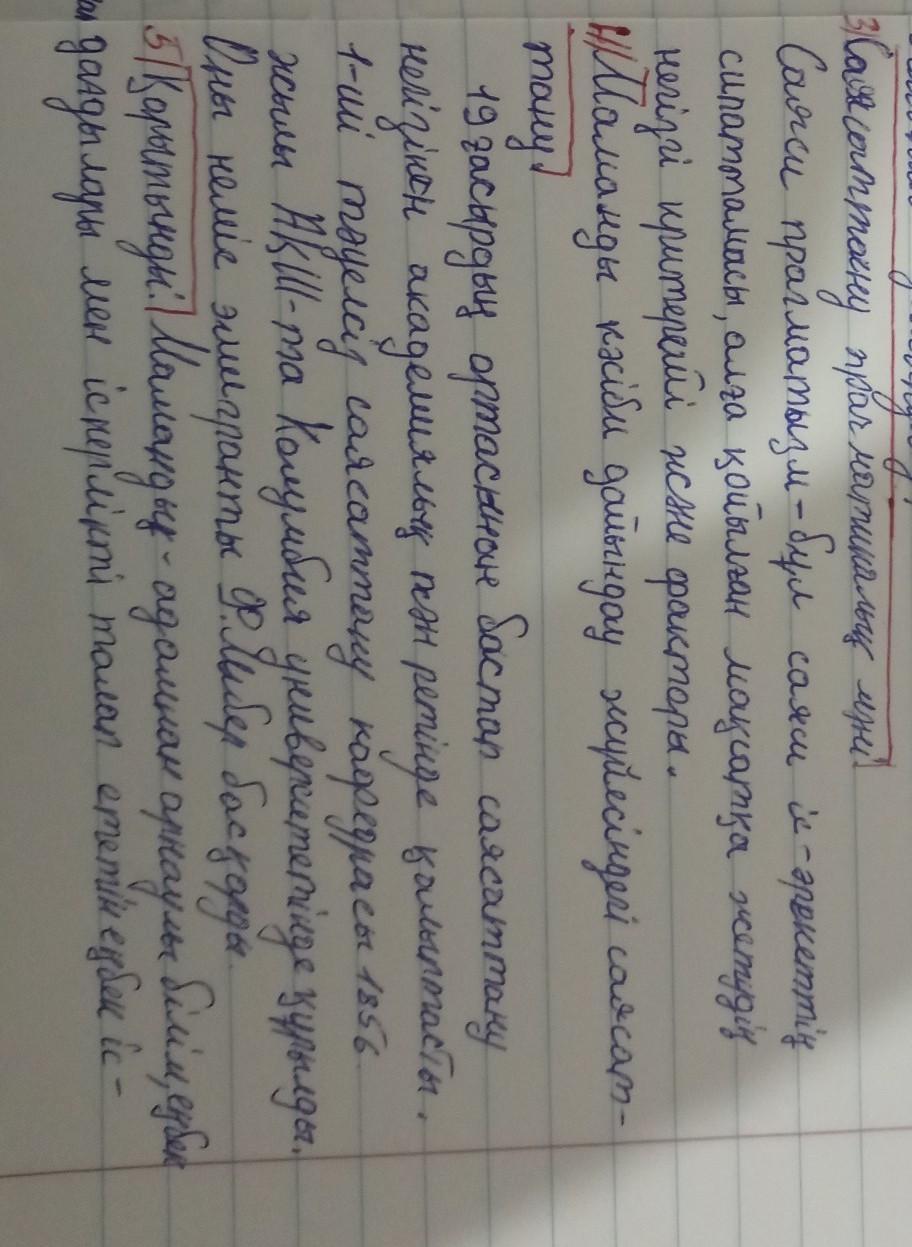 3) Саясаттану прагматикалық мәні
Саяси прагматызм - бұл саяси іс-әрекеттің
сипаттамасы, алға қойылған мақсатқа жетудің
негізгі критерейі және факторы.
4) Маманды кәсіби дайындау жүйесіндегі саясат-
тану
19 ғасырдың ортасынан бастап саясаттану
негізінен академиялық пән ретінде қалыптасты.
1-ші тәуелсіз саясаттану кафедрасы 1856
жылы АҚШ-та Колумбия университетінде құрылды.
Оны неміс эмигранты Ф.Либер басқарды.
5) Қорытынды: Мамандық - адамнан арнаулы білім, еңбек
дағдылары мен іскерлікті талап ететін еңбек іс-